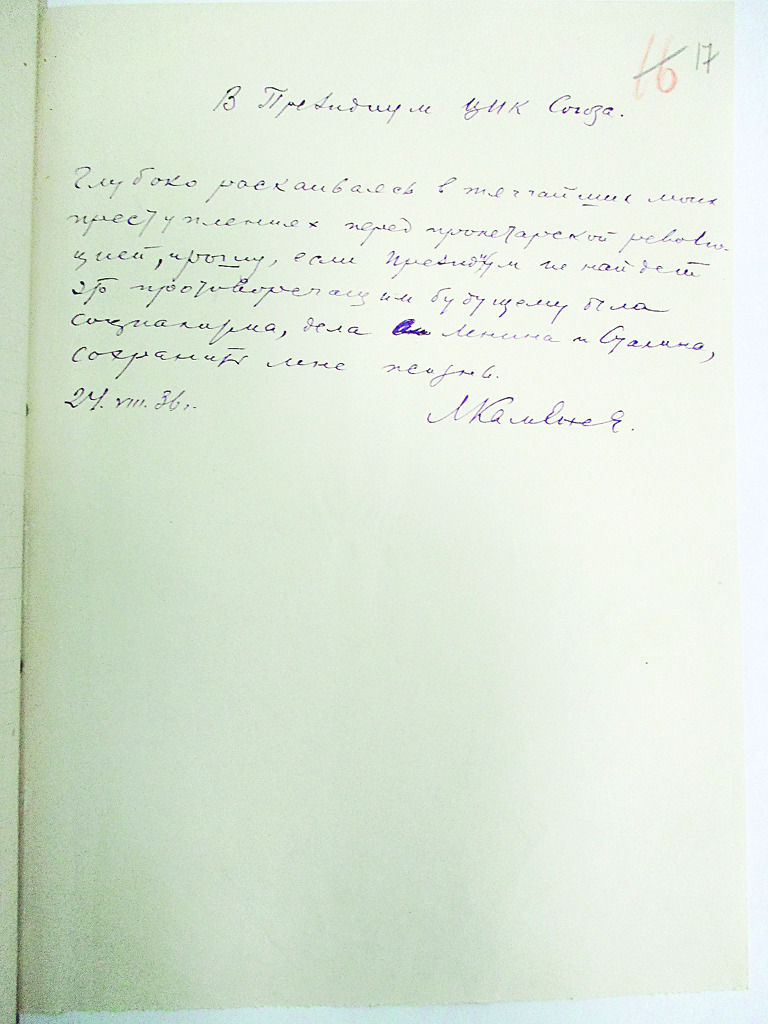 16 17
В Президиум ЦИК Союза.
Глубоко раскаиваясь в тягчайших моих
преступлениях перед пролетарской револю-
цией, прошу, если Президиум не найдет
это противоречащим будущему дела
социализма, дела Ленина и Сталина,
сохранить мне жизнь.
24.VIII.36г.
Л Каменев.